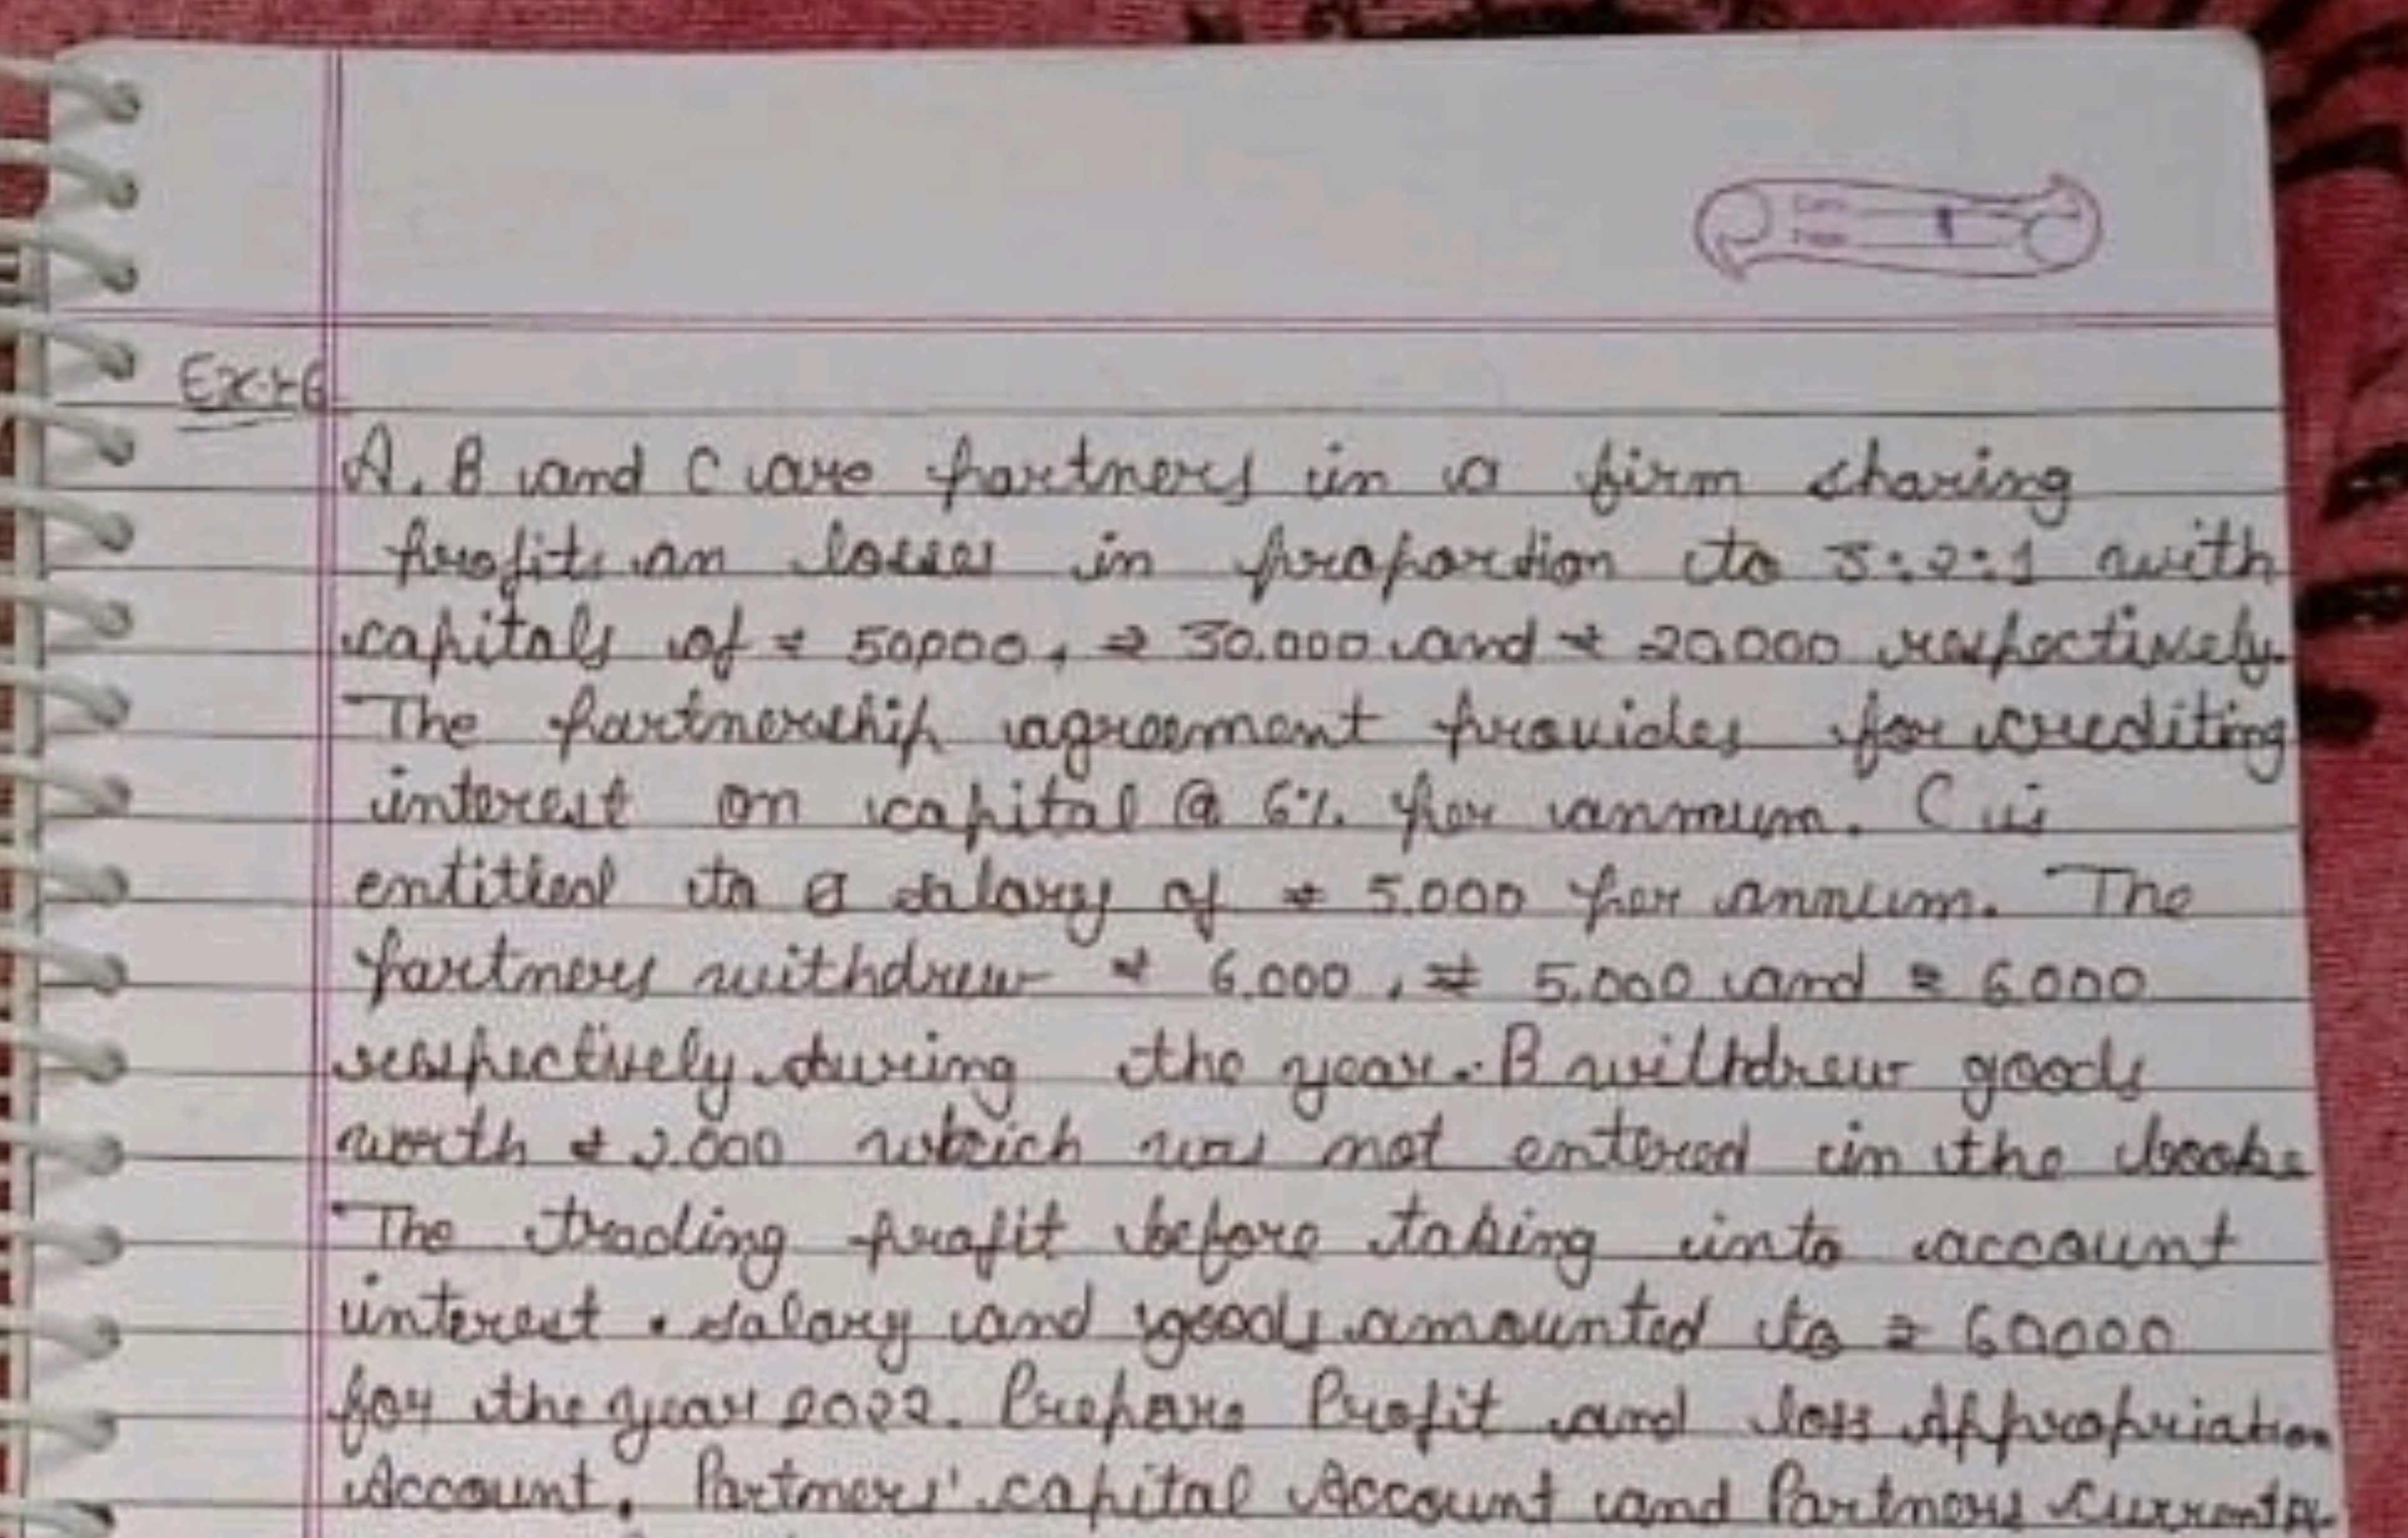 Ex:-6
A. B and C are partners in a firm sharing
profits an losses in proportion to 3:2:1 with
capitals of ₹ 50,000, ₹ 30.000 and ₹ 20,000 respectively.
The partnership agreement provides for crediting
interest on capital @ 6% per annum. C is
entitled to a salary of ₹ 5.000 per annum. The
partners withdrew ₹ 6.000, ₹ 5.000 and ₹ 6000
respectively during the year. B withdrew goods
worth ₹ 2.000 which was not entered in the books
The trading profit before taking into account
interest. salary and goods amounted to ₹ 60000
for the year 2022. Prepare Profit and loss Appropriation
Account. Partners' capital Account and Partners current